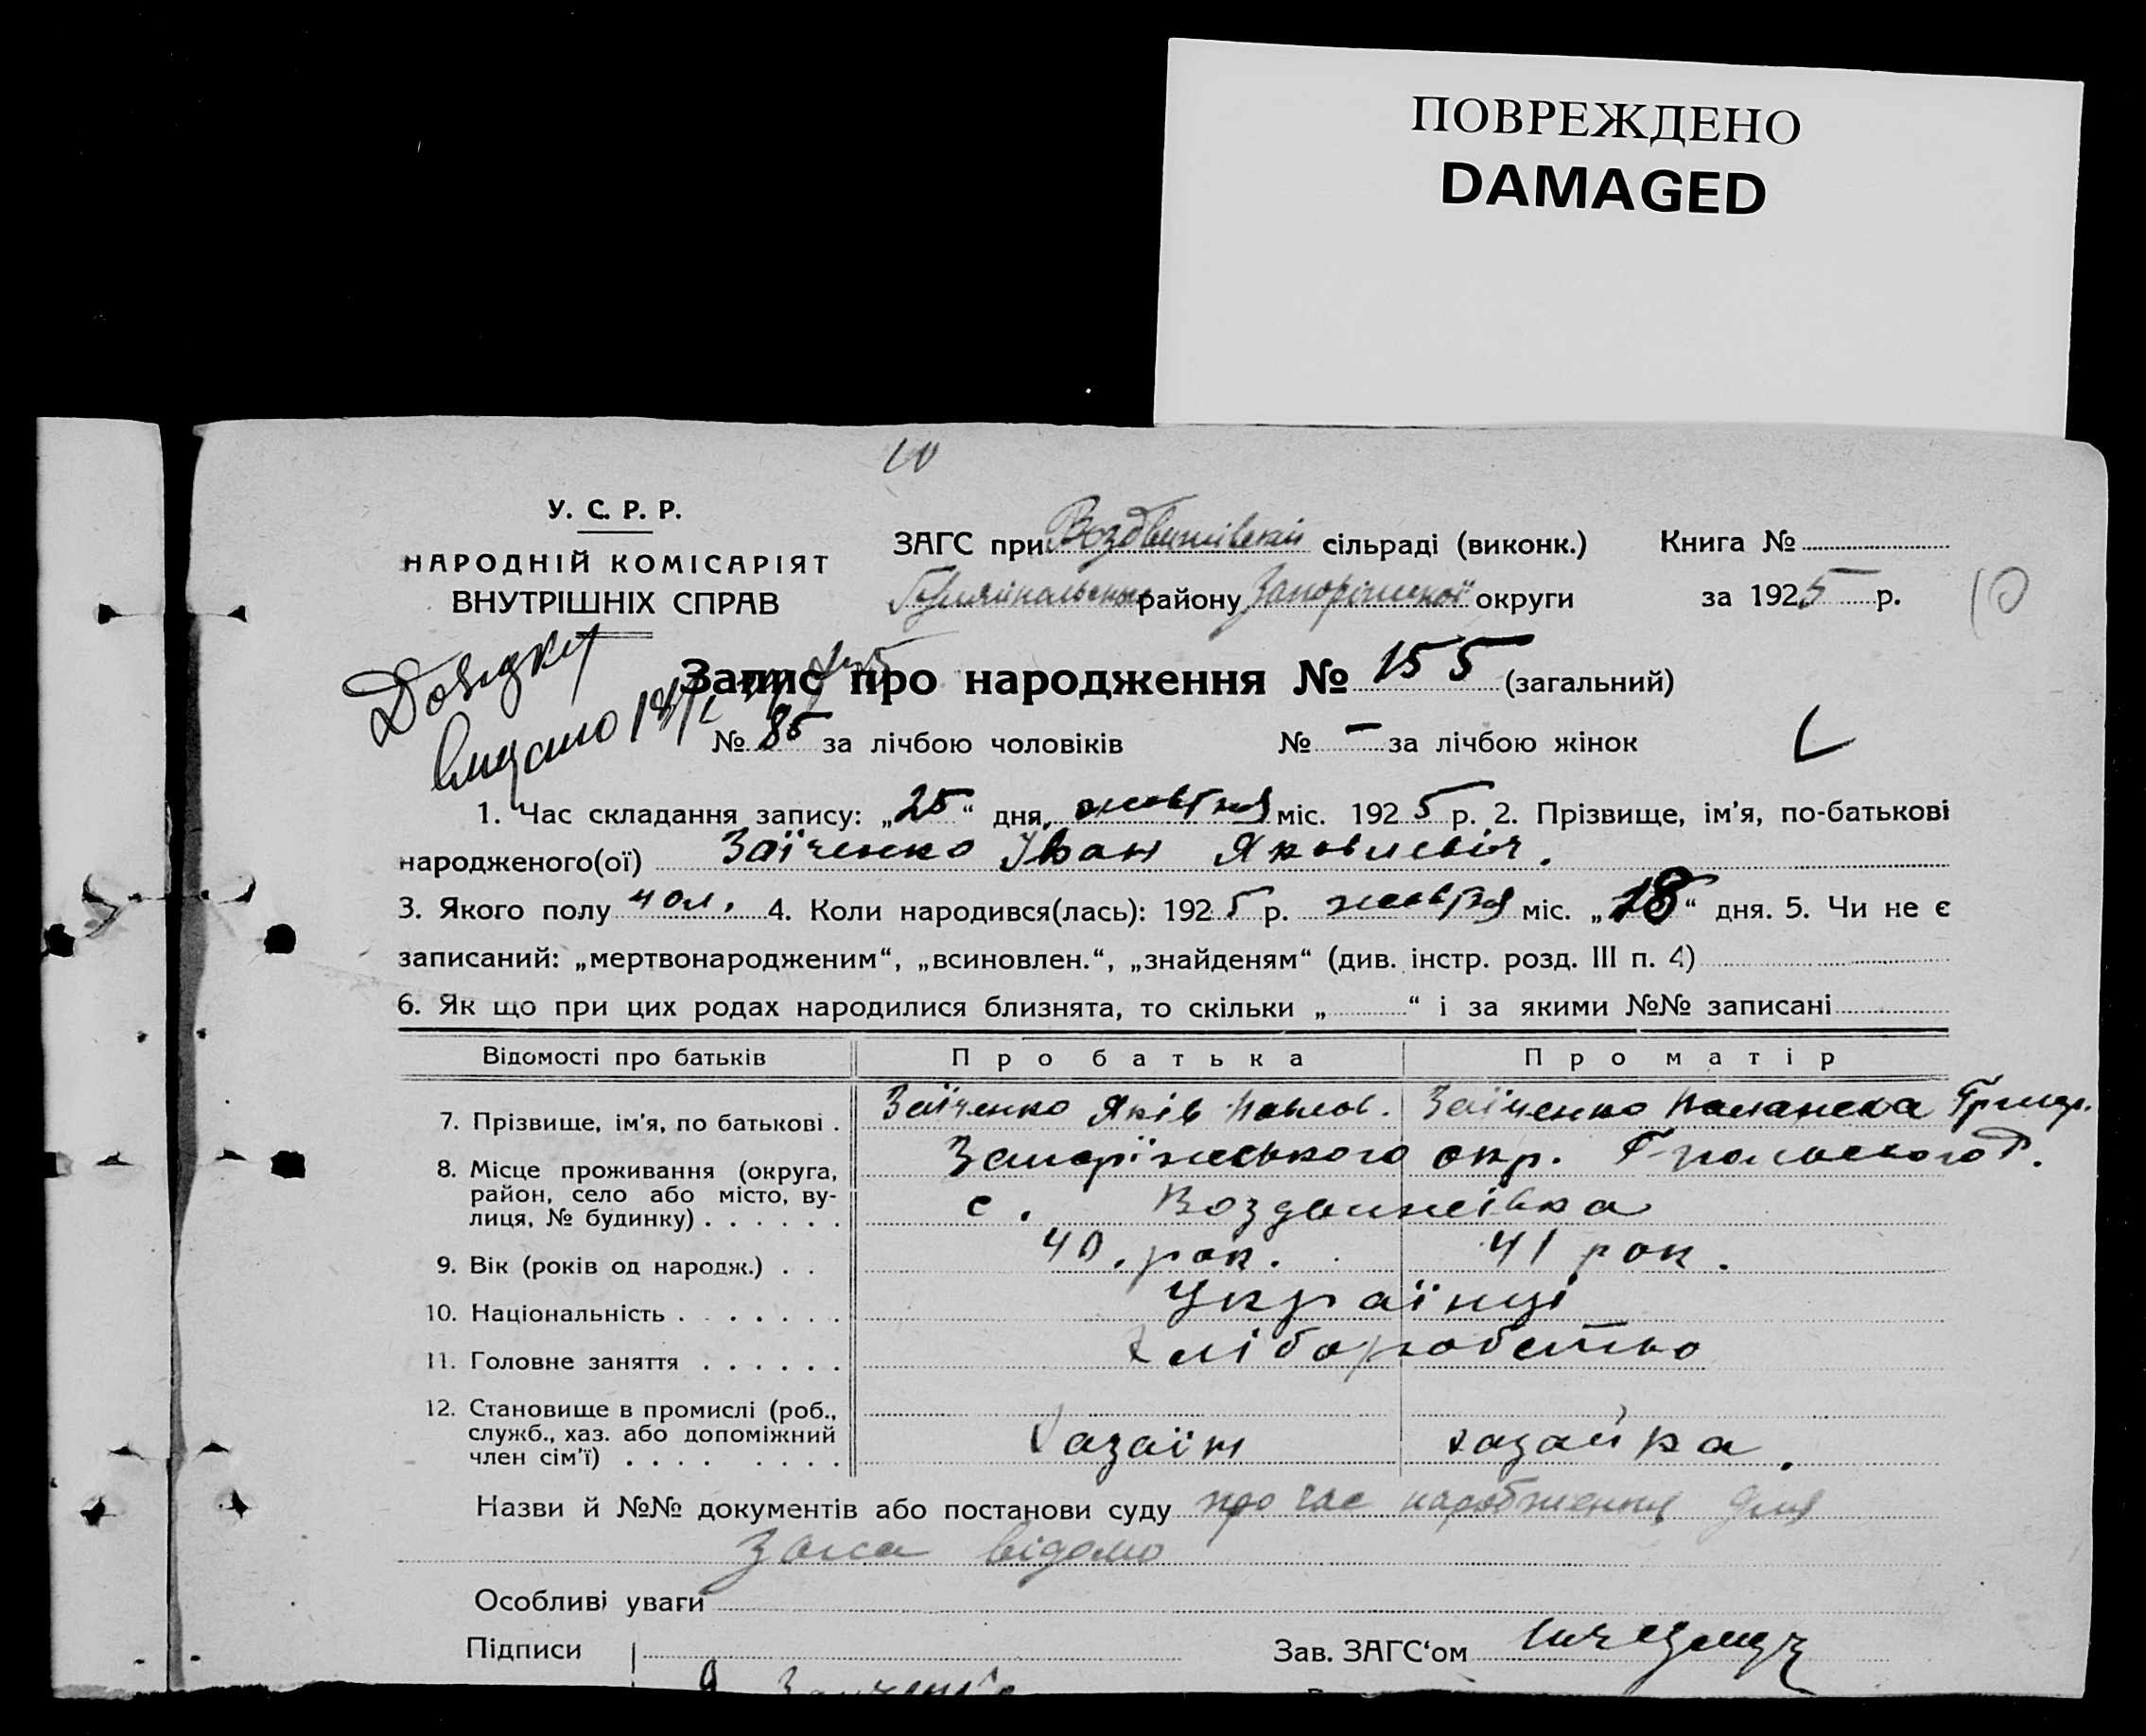 ПОВРЕЖДЕНО
DAMAGED
10
У. С. Р. Р.
НАРОДНІЙ КОМІСАРІЯТ
ВНУТРІШНІХ СПРАВ
ЗАГС при Воздвижівскій сільраді (виконк.) Книга №
району Запоріжскої округи за 1925 р.
10
Довідку
видано
Запис про народження № 155 (загальний)
№ 85 за лічбою чоловіків № – за лічбою жінок
1. Час складання запису: „25“ дня, жовтня міс. 1925 р. 2. Прізвище, ім'я, по-батькові
народженого(ої) Заїченко Іван Яковлевіч.
3. Якого полу чол. 4. Коли народився(лась): 1925 р. жовтня міс. „18“ дня. 5. Чи не є
записаний: „мертвонародженим“, „всиновлен.“, „знайденям“ (див. інстр. розд. III п. 4)
6. Як що при цих родах народилися близнята, то скільки „ “ і за якими №№ записані
Відомості про батьків Про батька Про матір
7. Прізвище, ім'я, по батькові . Заїченко Яків Павлов. Заїченко Паланека Григор.
8. Місце проживання (округа, Запоріжського окр. Г-польского Р.
район, село або місто, ву-
лиця, № будинку) . . . . . . с. Воздвижівка
9. Вік (років од народж.) . . 40. рок. 41 рок.
10. Національність . . . . . . . Українці
11. Головне заняття . . . . . . хліборобство
12. Становище в промислі (роб.,
служб., хаз. або допоміжний Хазаїн хазайка.
член сім'ї) . . . . . . . .
Назви й №№ документів або постанови суду про час народження для
Загса відомо
Особливі уваги
Підписи Зав. ЗАГС‘ом